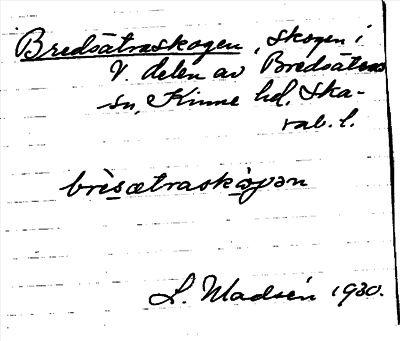 Bredsätraskogen, skogen i
V. delen av Bredsätra
sn, Kinne hd. Ska-
rab. l.
brèsætraskògən
L. Madsén 1930.